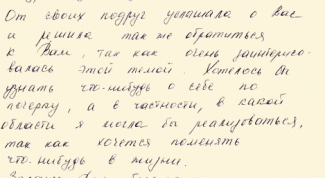 От своих подруг услышала о Вас
и решила так же обратиться
к Вам, так как очень заинтересо-
валась этой темой. Хотелось бы
узнать что-нибудь о себе по
почерку, а в частности, в какой
области я могла бы реализоваться,
так как хочется поменять
что-нибудь в жизни.